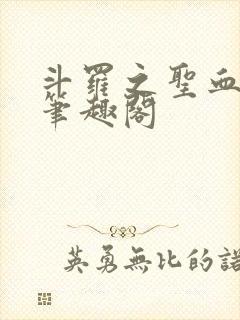 斗羅之聖血
筆趣閣
英勇無比的諾